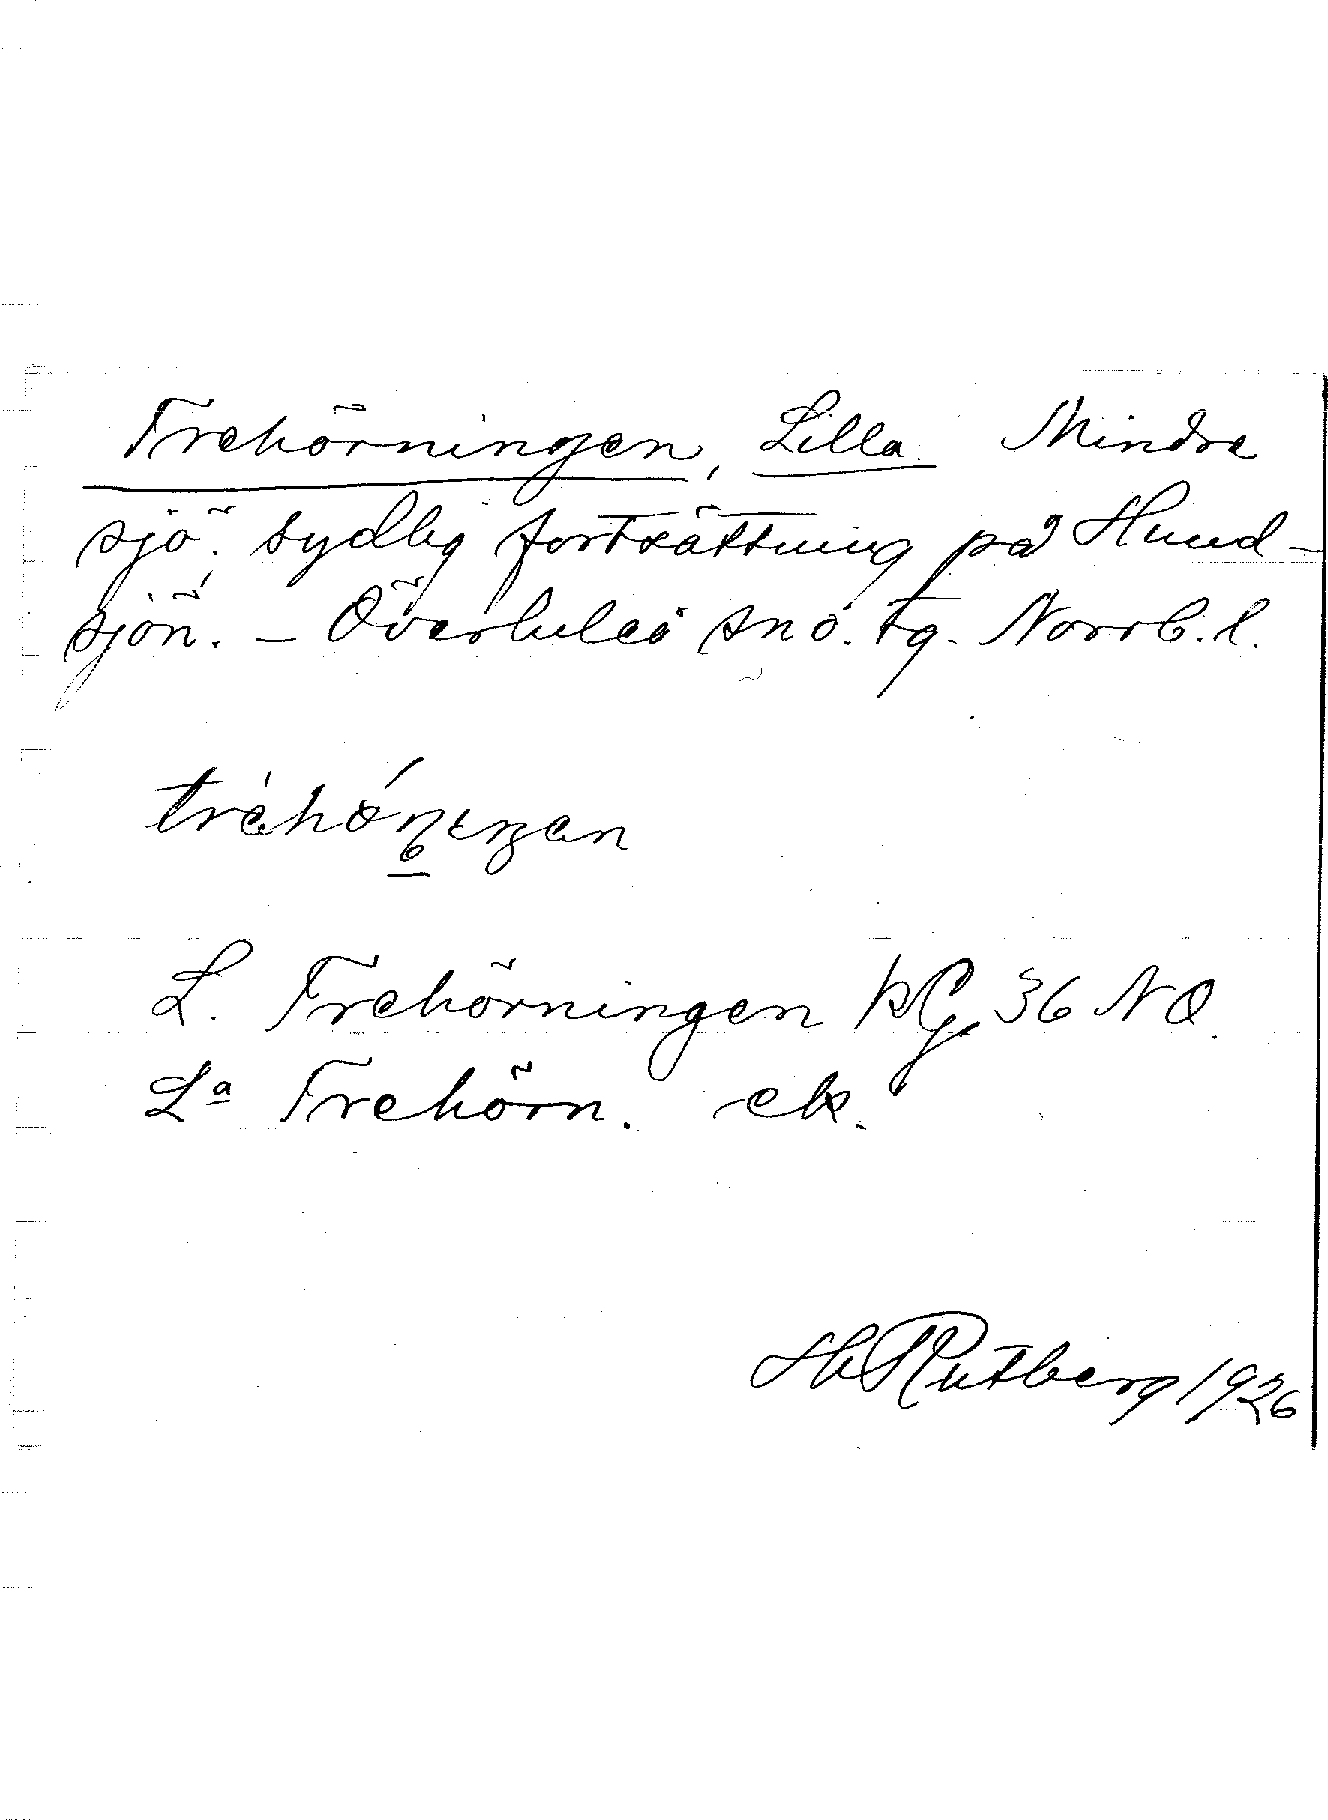 Trehörningen, Lilla. Mindre
sjö; sydlig fortsättning på Hund-
sjön. – Överluleå sn o. tg. Norrb. l.
L. Trehörningen KG. 36 NO.
La Trehörn. ek.
H Rutberg 1926